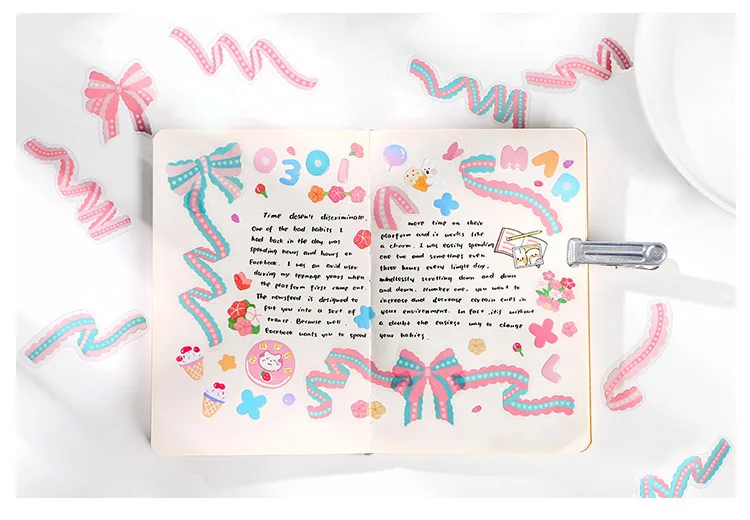 0301
Time doesn't discriminate.
One of the bad habits I
had back in the day was
spending hours and hours on
Facebook. I was an avid user
during my teenage years when
the platform first came out.
The newsfeed is designed to
put you into a sort of
trance. Because well.
Facebook wants you to spend
MAR
more time on their
platform and it works like
a charm. I was easily spending
one two and sometimes even
three hours every single day,
mindlessly scrolling down and down
and down. Number one, you want to
increase and decrease certain cues in
your environment. In fact, it's without
a doubt the easiest way to change
your habits.